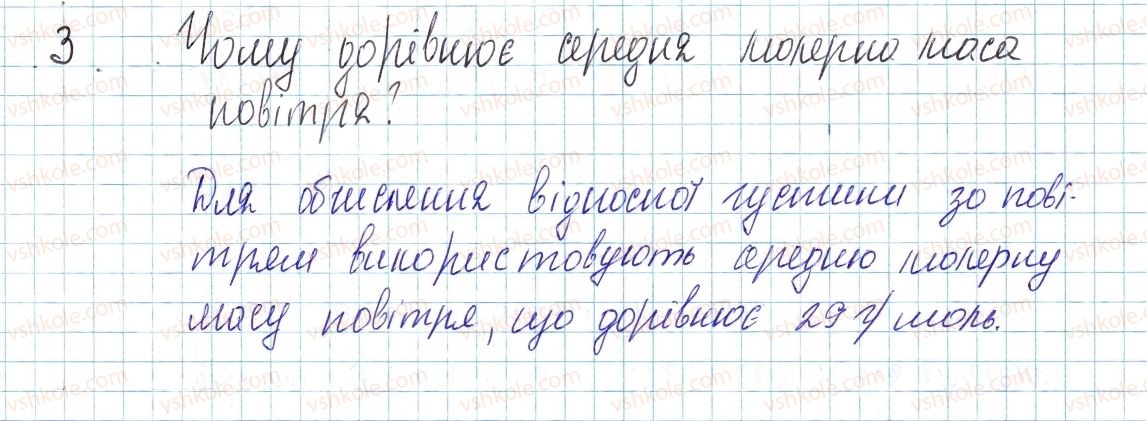 3. Чому дорівнює середня молярна маса
повітря?
Для обчислення відносної густини за пові-
трям використовують середню молярну
масу повітря, що дорівнює 29 г/моль.